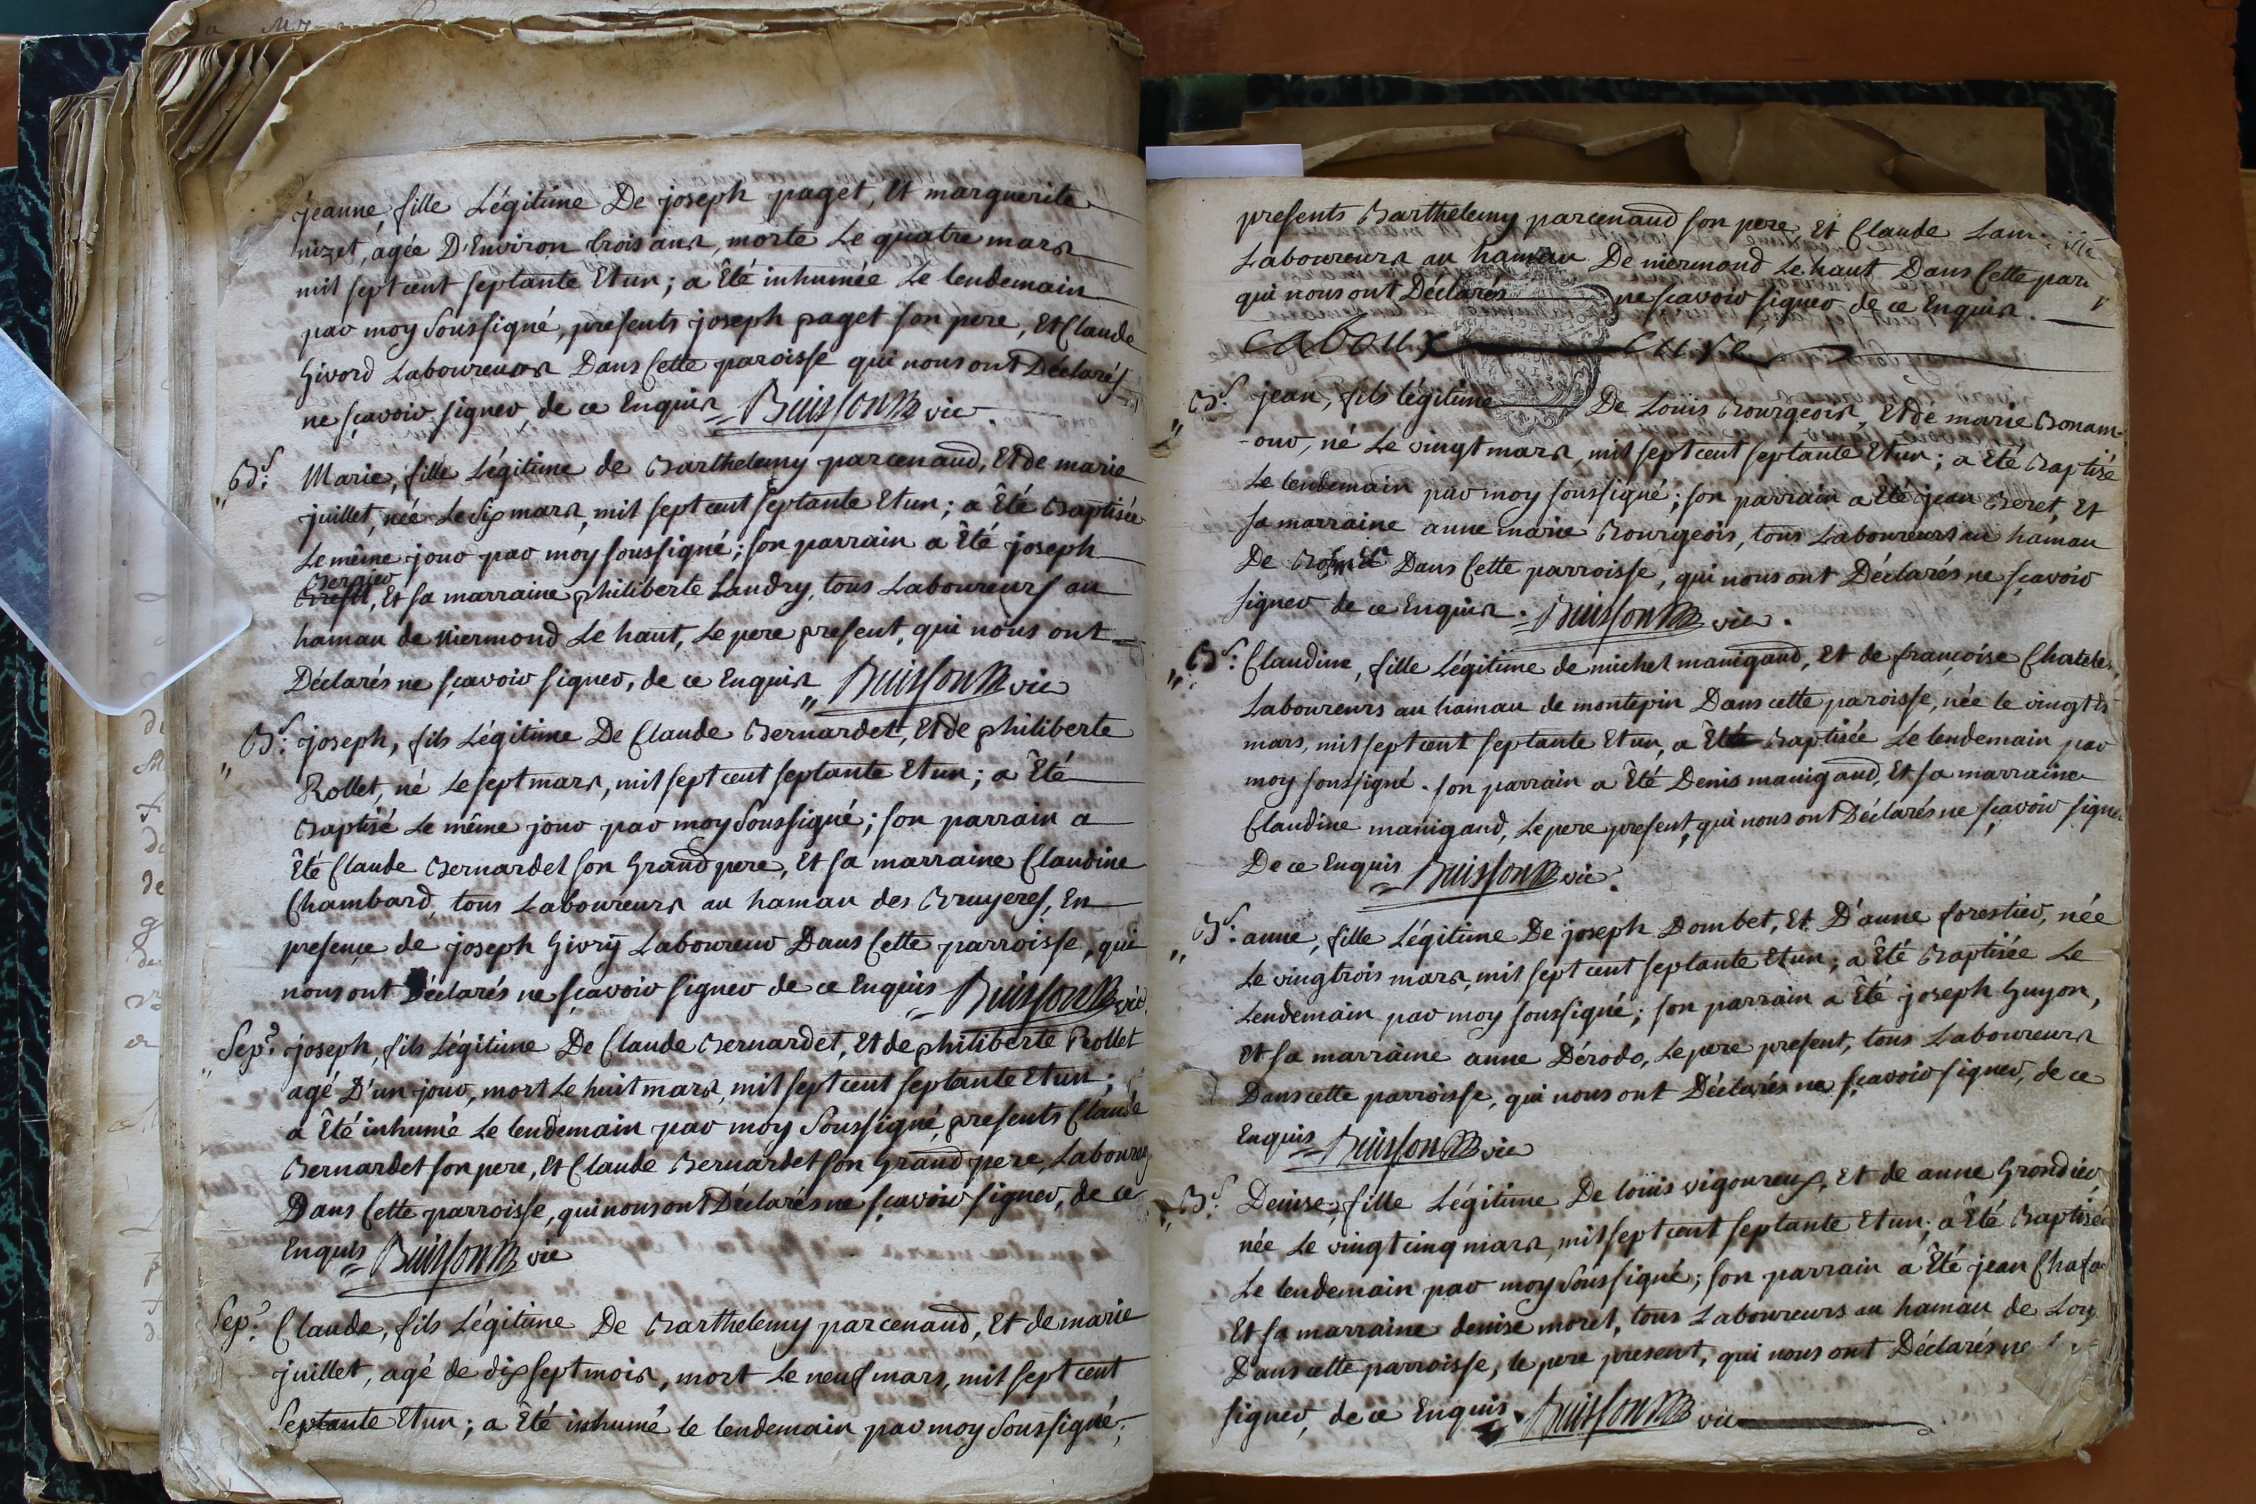 jeanne, fille Légitime De joseph paget, Et marguerite
nizet, agée D'Environ trois ans, morte Le quatre mars
mil sept cent septante Et un ; a Été inhumée Le lendemain
par moy Soussigné, presents joseph paget son pere, Et Claude
Givord Laboureurs Dans Cette paroisse qui nous ont Déclarés
ne sçavoir signer, de ce Enquis Buisson vic.
Bs. Marie, fille Légitime de Barthelemy parcenaud, Et de marie
juillet, née Le Six mars, mil sept cent septante Et un ; a Été Baptisée
Le même jour par moy soussigné ; son parrain a Été joseph
Bernier
, Et sa marraine philiberte Landry, tous Laboureurs au
hamau de miermond Le haut, Le pere present, qui nous ont
Déclarés ne sçavoir signer, de ce Enquis Buisson vic
Bs. joseph, fils Légitime De Claude Bernardet, Et de philiberte
Rollet, né Le sept mars, mil sept cent septante Et un ; a Été
Baptisé Le même jour par moy Soussigné ; son parrain a
Été Claude Bernardet son Grand pere, Et sa marraine Claudine
Chambard, tous Laboureurs au hamau des Bruyeres, En
presence de joseph Givry Laboureur Dans Cette parroisse, qui
nous ont Déclarés ne sçavoir signer de ce Enquis Buisson vic
Sep. joseph, fils Légitime De Claude Bernardet, Et de philiberte Rollet
agé D'un jour, mort Le huit mars, mil sept cent septante Et un ;
a Été inhumé Le lendemain par moy Soussigné, presents Claude
Bernardet son pere, Et Claude Bernardet son Grand pere, Laboureurs
Dans Cette parroisse, qui nous ont Déclarés ne sçavoir signer, de ce
Enquis Buisson vic
Sep. Claude, fils Légitime De Barthelemy parcenaud, Et de marie
juillet, agé de dix sept mois, mort Le neuf mars, mil sept cent
Septante Et un ; a Été inhumé le lendemain par moy Soussigné,
presents Barthelemy parcenaud son pere, Et Claude
Laboureurs au hamau De miermond Le haut Dans Cette par
qui nous ont Déclarés ne sçavoir signer de ce Enquis.
caboux curé
Bs. jean, fils légitime De Louis Bourgeois, Et de marie Bonam-
-our, né Le vingt mars, mil sept cent septante Et un ; a Eté Baptisé
Le lendemain par moy soussigné ; son parrain a Été jean Beret, Et
sa marraine anne marie Bourgeois, tous Laboureurs au hamau
De Dans Cette parroisse, qui nous ont Déclarés ne sçavoir
signer de ce Enquis. Buisson vic.
Bs. Claudine, fille Légitime de michel manigaud, Et de françoise
Laboureurs au hamau de montepin Dans cette paroisse, née le vingt
mars, mil sept cent septante Et un, a Été Baptisée Le lendemain par
moy soussigné. son parrain a Été Denis manigaud, Et sa marraine
Claudine manigaud, Le pere present, qui nous ont Déclarés ne sçavoir signer
De ce Enquis Buisson vic.
Bs. anne, fille Légitime De joseph Dombet, Et D'anne forestier, née
Le vingtrois mars, mil sept cent septante Et un ; a Été Baptisée Le
Lendemain par moy soussigné ; son parrain a Été joseph Guyon,
Et sa marraine anne Dérodo, Le pere present, tous Laboureurs
Dans cette parroisse, qui nous ont Déclarés ne sçavoir signer, de ce
Enquis Buisson vic
Bs. Denise, fille Légitime De louis vigoureux, Et de anne Grondier
née Le vingt cinq mars, mil sept cent septante Et un ; a Été Baptisée
Le lendemain par moy Soussigné ; son parrain a Été jean
Et sa marraine denise moret, tous Laboureurs au hamau de
Dans cette parroisse, le pere present, qui nous ont Déclarés ne
signer, de ce Enquis. Buisson vic